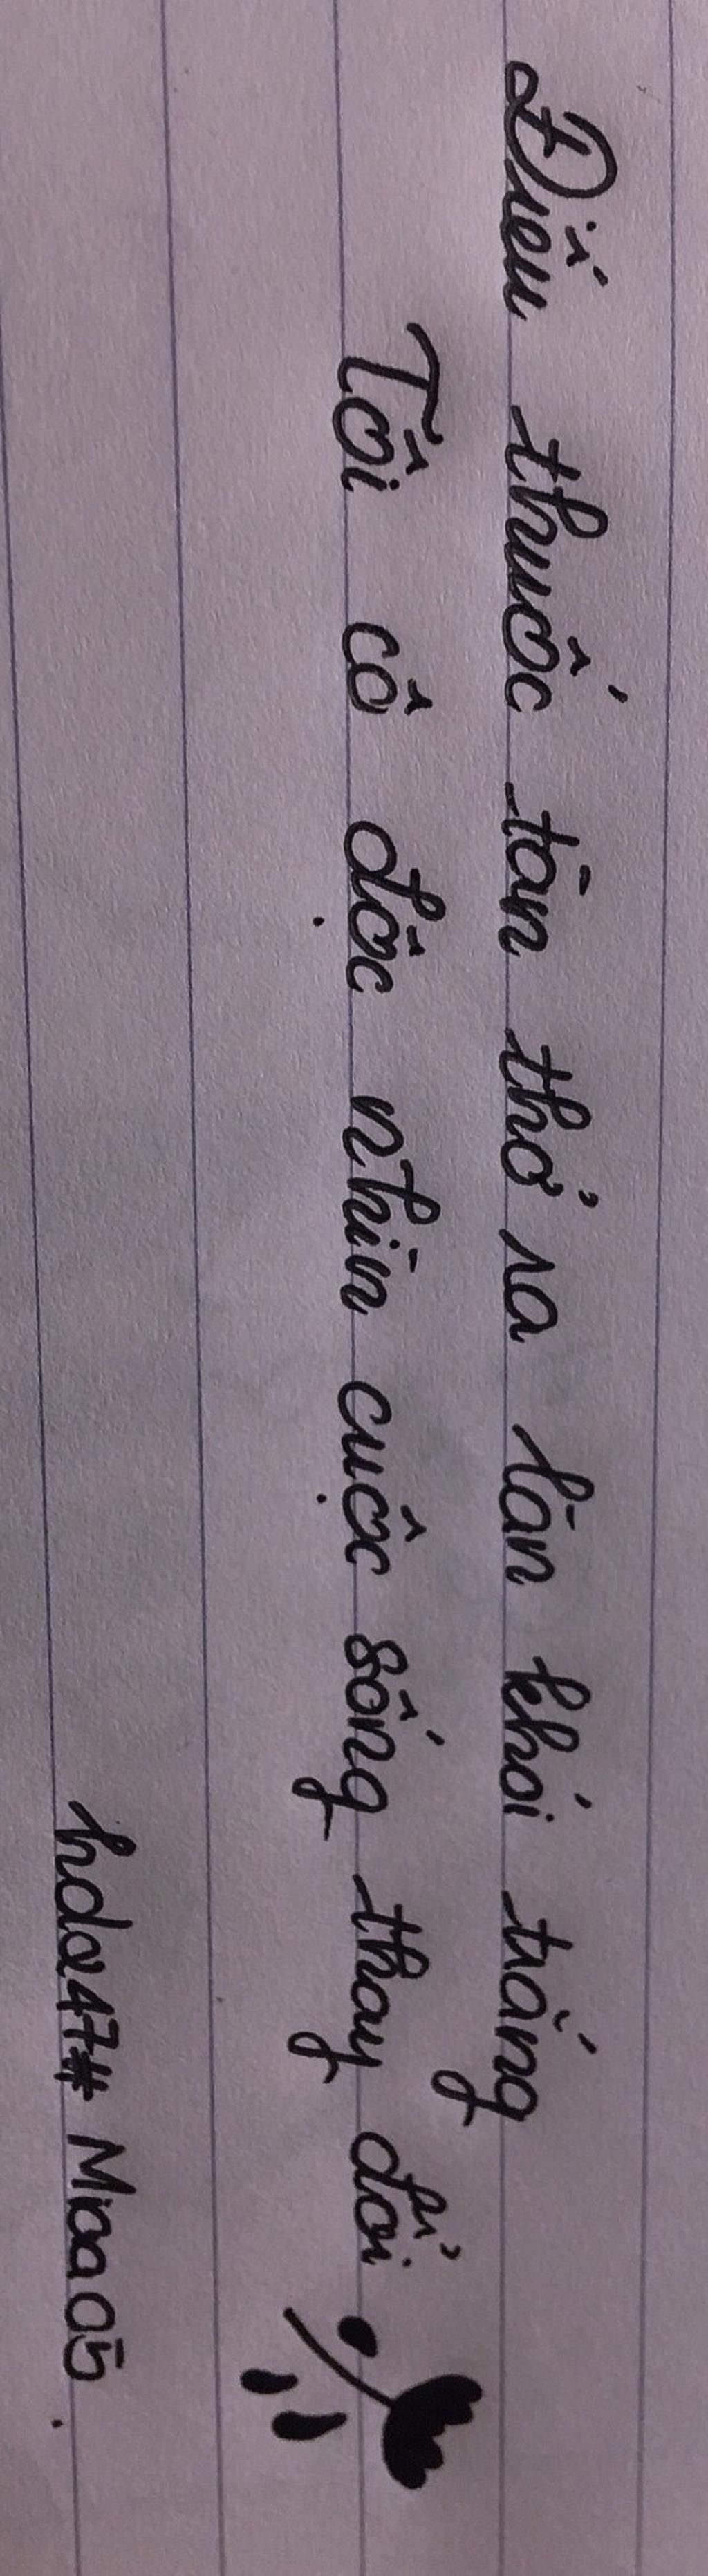 Điếu thuốc tàn thở ra làn khói trắng
Tôi cô độc nhìn cuộc sống thay đổi
hda47# Miaa05.